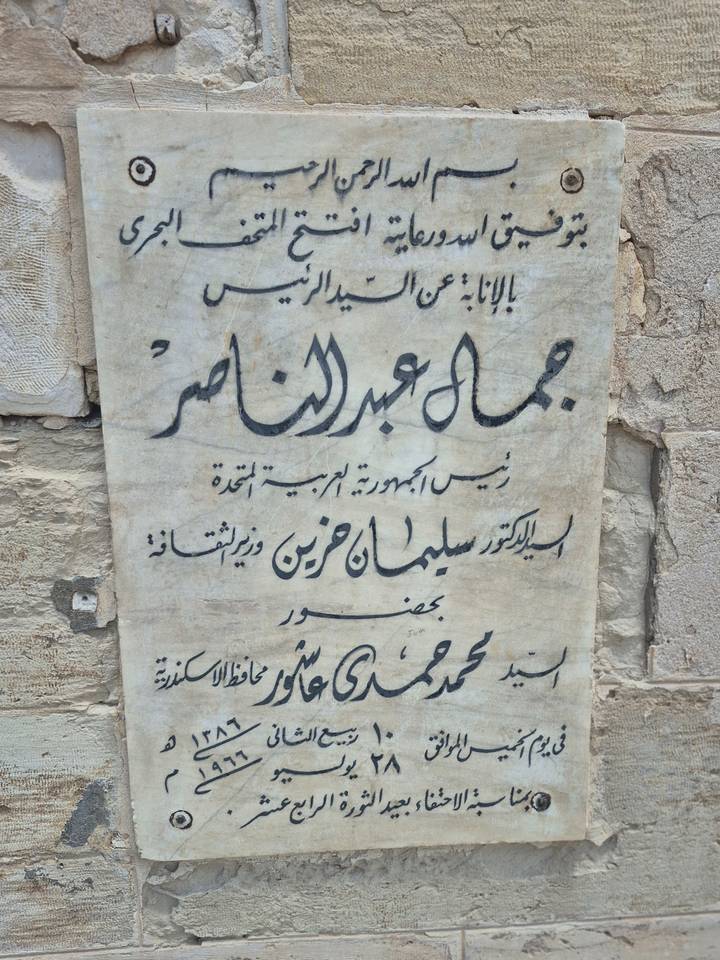 بسم الله الرحمن الرحيم
بتوفيق الله ورعايته افتتح المتحف البحرى
بالإنابة عن السيّد الرئيس
جمال عبد الناصر
رئيس الجمهورية العربية المتحدة
السيد الدكتور سليمان حزين وزير الثقافة
بحضور
السيّد محمد حمدى عاشور محافظ الاسكندرية
فى يوم الخميس الموافق ١٠ ربيع الثانى ١٣٨٦ ھ
٢٨ يوليو ١٩٦٦ م
بمناسبة الاحتفاء بعيد الثورة الرابع عشر